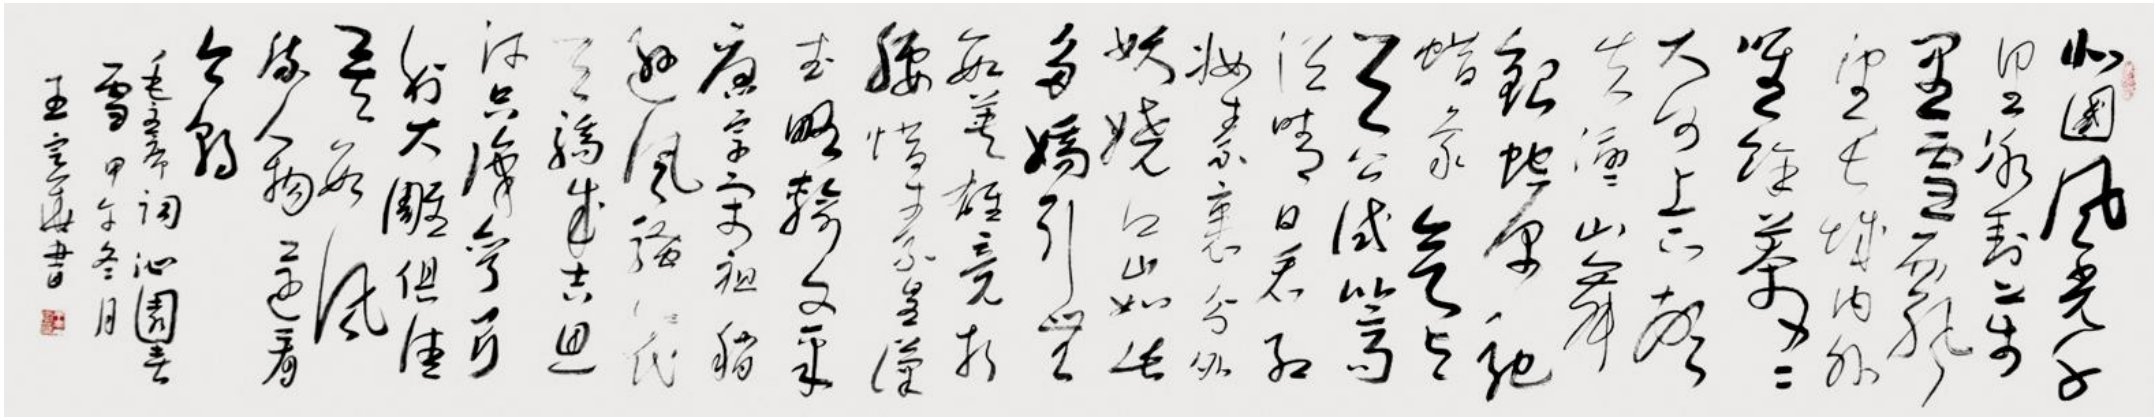 北國風光千
里冰封萬
里雪飄
望長城内外
惟餘莽々
大河上下頓
失滔々山舞
銀蛇原馳
蜡象欲与
天公試比高
須晴日看红
妆素裹分外
妖嬈江山如此
多嬌引無
數英雄竞折
腰惜秦皇漢
武略輸文采
唐宗宋祖稍
逊風騷一代
天驕成吉思
汗只識彎弓
射大雕俱往
矣數風
流人物還看
今朝
毛主席詞沁園春
雪甲午冬月
王華書